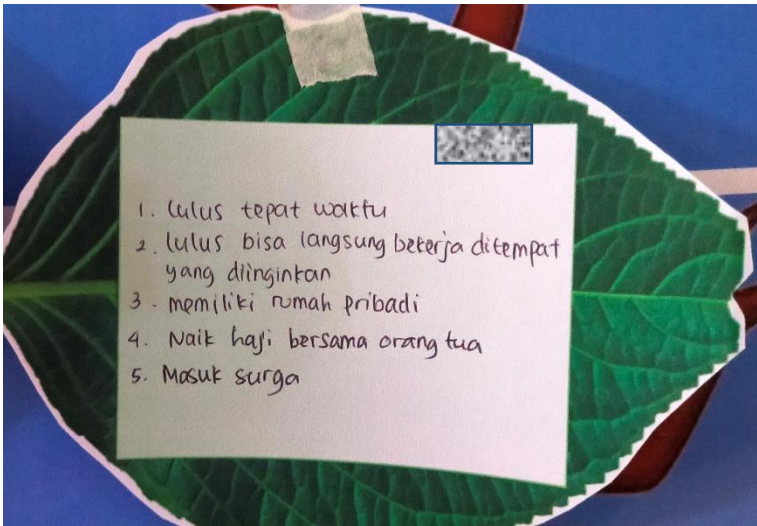 1. lulus tepat waktu
2. lulus bisa langsung bekerja ditempat
yang diinginkan
3. memiliki rumah pribadi
4. Naik haji bersama orang tua
5. Masuk surga